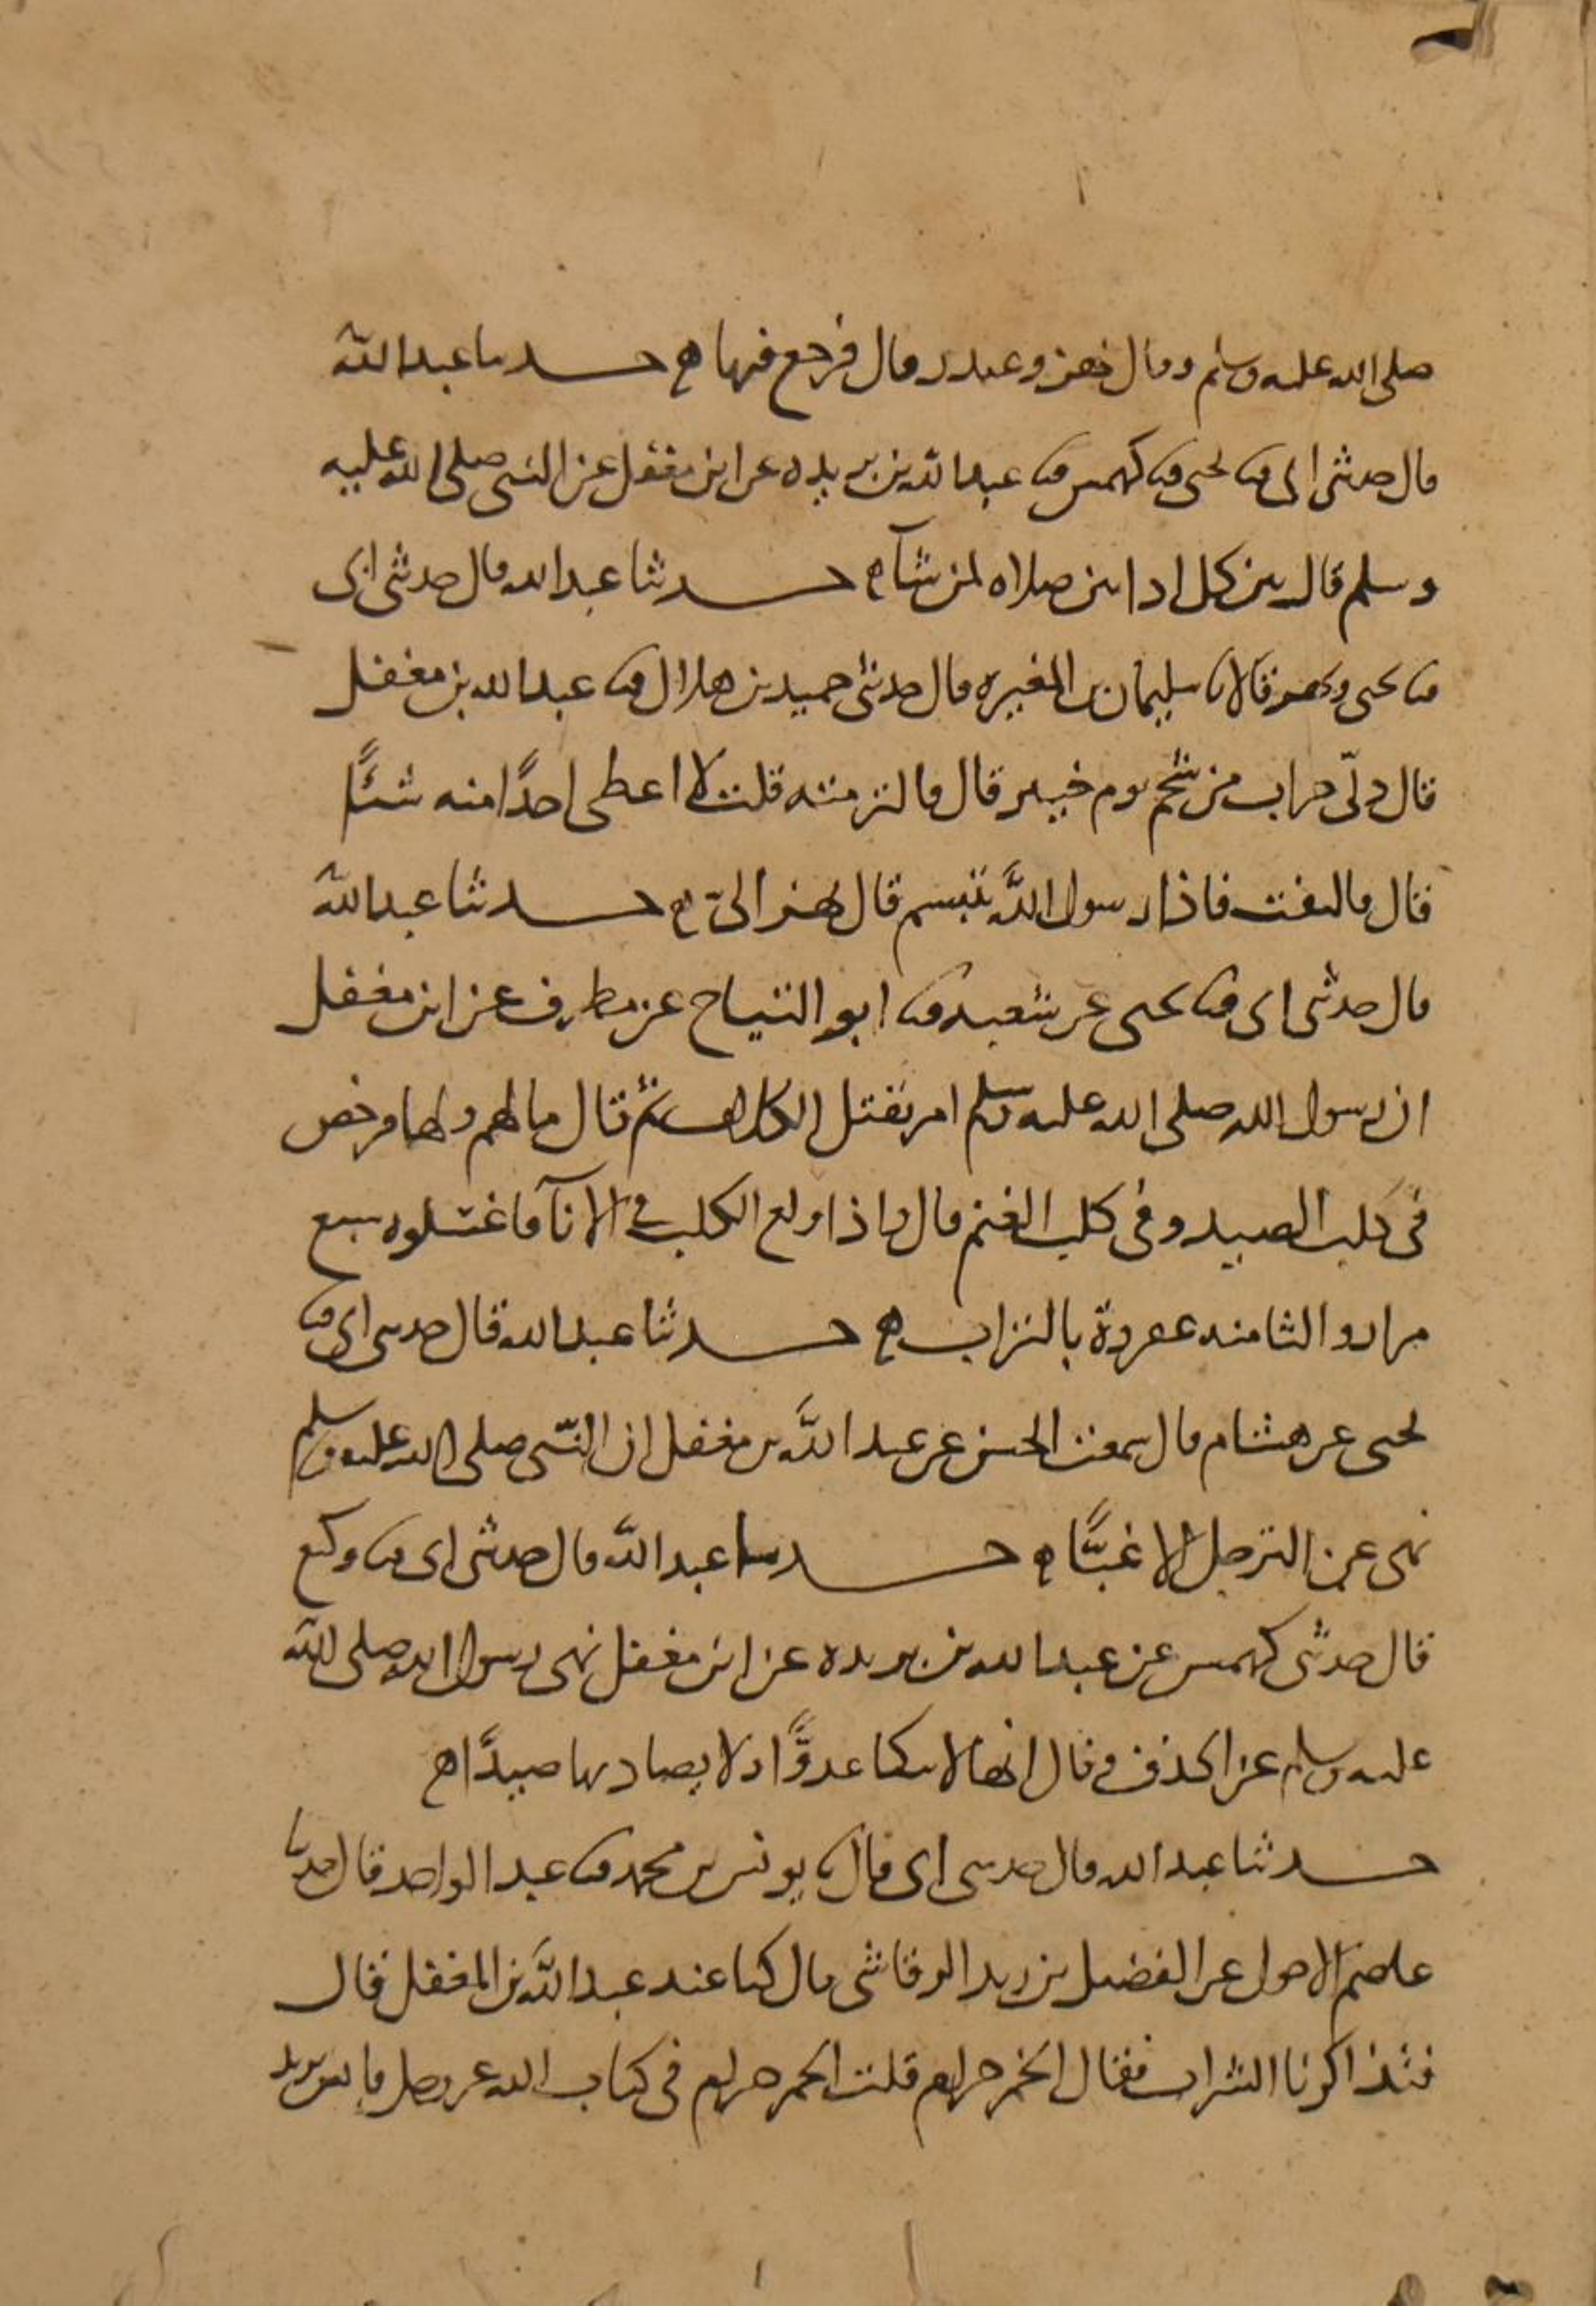 صلى الله عليه وسلم وقال بهز وغندر قال فرجع فيها ه حدثنا عبد الله
قال حدثني ابي ثنا يحيى ثنا كهمس ثنا عبد الله بن بريده عن ابن مغفل عن النبي صلى الله عليه
وسلم قال بين كل اذانين صلاه لمن شآ ه حدثنا عبد الله قال حدثني ابي
ثنا يحيى وبهز قالا نا سليمان بن المغيره قال حدثني حميد بن هلال ثنا عبد الله بن مغفل
قال دلّي جراب من شحم يوم خيبر قال فالتزمته قلت لا اعطي احدًا منه شئًا
قال فالتفت فاذا رسول الله يتبسم قال بهز اليّ ه حدثنا عبد الله
قال حدثني ابي ثنا يحيى عن شعبه ثنا ابو التياح عن مطرف عن ابن مغفل
ان رسول الله صلى الله عليه وسلم امر بقتل الكلاب ثم قال ما لهم ولها فرخص
في كلب الصيد وفي كلب الغنم قال واذا ولغ الكلب في الانآ فاغسلوه سبع
مرار والثامنه عفروة بالتراب ه حدثنا عبد الله قال حدثني ابي ثنا
يحيى عن هشام قال سمعت الحسن عن عبد الله بن مغفل ان النبي صلى الله عليه وسلم
نهى عن الترجل الا غبًّا ه حدثنا عبد الله قال حدثني ابي ثنا وكيع
قال حدثني كهمس عن عبد الله بن بريده عن ابن مغفل نهى رسول الله صلى الله
عليه وسلم عن الخذف وقال انها لا ينكا عدوًّا ولا يصاد بها صيدًا ه
حدثنا عبد الله قال حدثني ابي قال نا يونس بن محمد ثنا عبد الواحد قال حدثنا
عاصم الاحول عن الفضيل بن زيد الرقاشي قال كنا عند عبد الله بن المغفل قال
فتذاكرنا الشراب فقال الخمر حرام قلت الخمر حرام في كتاب الله عز وجل فايش تريد